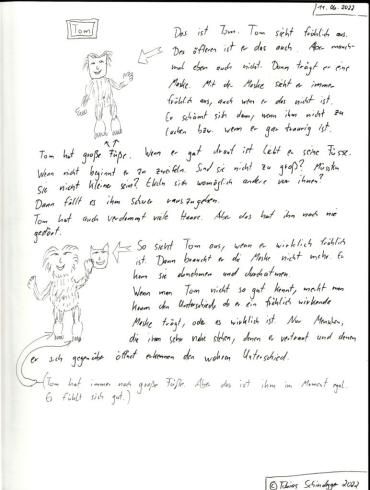 11.06.2022
Tom
Das ist Tom. Tom sieht fröhlich aus.
Des öfteren ist er das auch. Aber manch-
mal eben auch nicht. Dann trägt er eine
Maske. Mit der Maske sieht er immer
fröhlich aus, auch wenn er das nicht ist.
Er schämt sich dann, wenn ihm nicht zu
Lachen bzw. wenn er gar traurig ist.
Tom hat große Füße. Wenn er gut drauf ist liebt er seine Füsse.
Wenn nicht beginnt er zu zweifeln. Sind sie nicht zu groß? Müssten
Sie nicht kleiner sein? Ekeln sich womöglich andere vor ihnen?
Dann fällt es ihm schwer rauszugehen.
Tom hat auch verdammt viele Haare. Aber das hat ihn noch nie
gestört.
So sieht Tom aus, wenn er wirklich fröhlich
ist. Dann braucht er die Maske nicht mehr. Er
kann sie abnehmen und durchatmen.
Wenn man Tom nicht so gut kennt, merkt man
kaum den Unterschied, ob er ein fröhlich wirkende
Maske trägt, oder es wirklich ist. Nur Menschen,
die ihm sehr nahe stehen, denen er vertraut und denen
er sich gegenüber öffnet erkennen den wahren Unterschied.
(Tom hat immer noch große Füße. Aber das ist ihm im Moment egal.
Er fühlt sich gut.)
© Tobias 2022